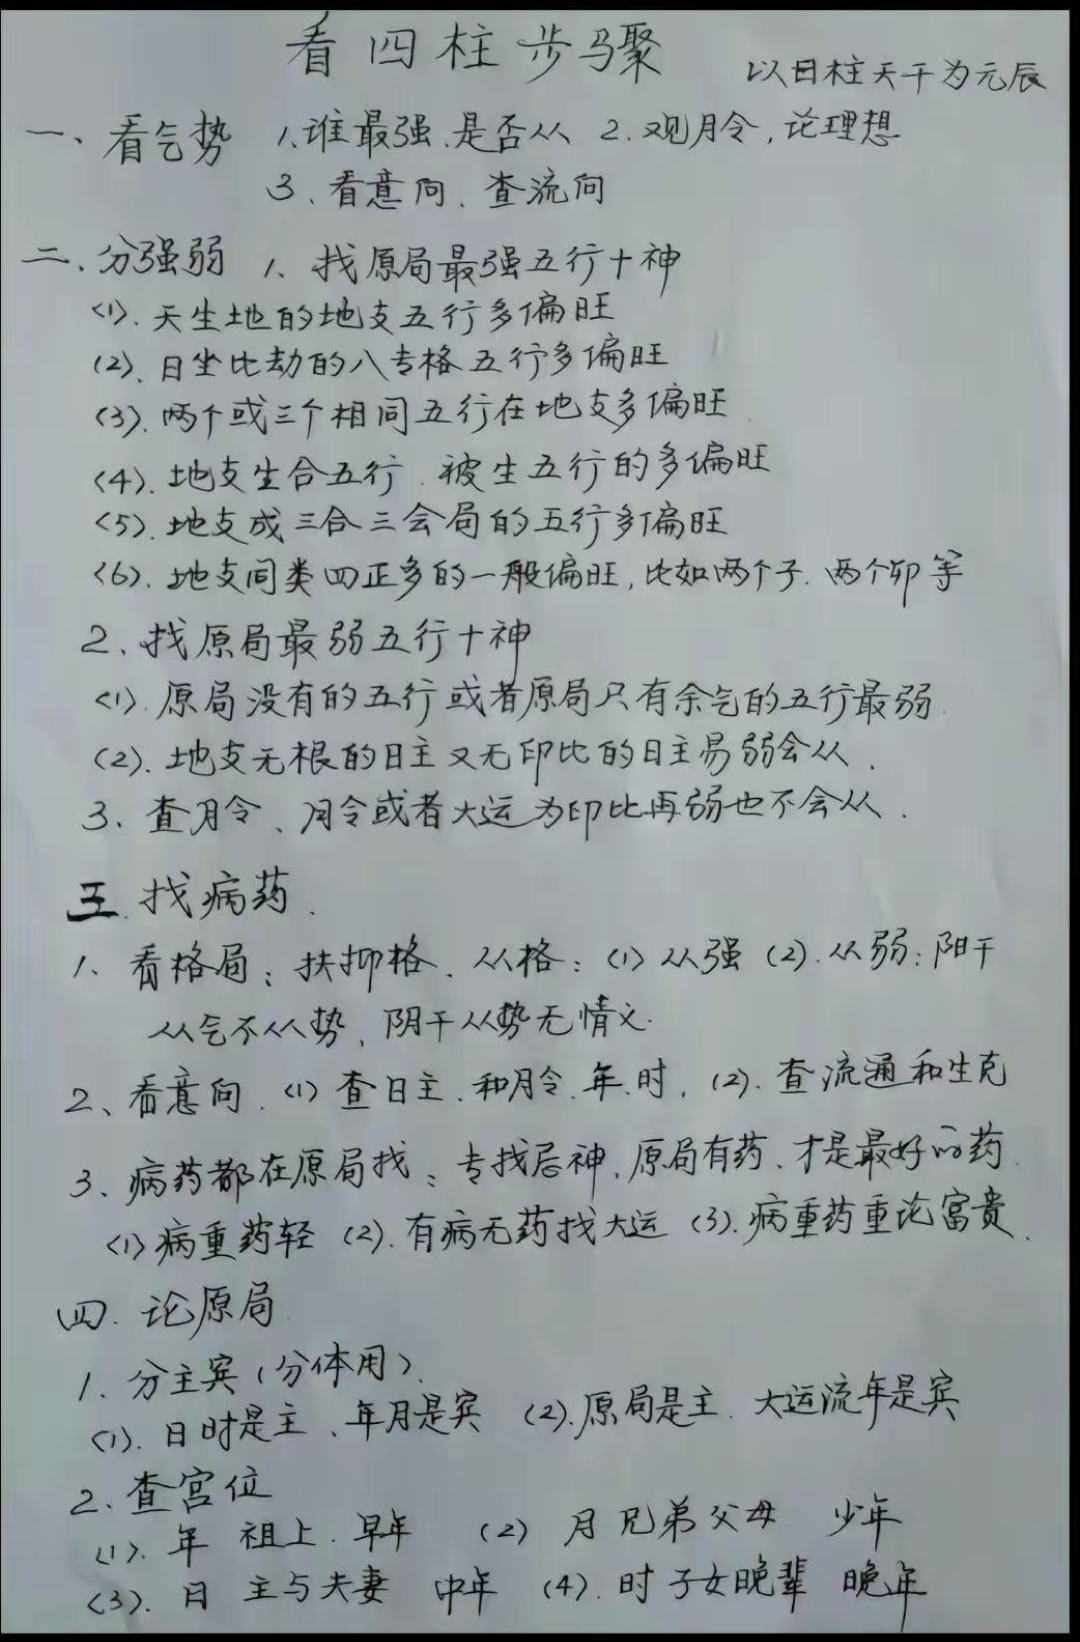 看四柱步骤 以日柱天干为元辰
一、看气势 1、谁最强.是否从 2.观月令,论理想
3、看意向、查流向
二、分强弱 1、找原局最强五行十神
(1)、天生地的地支五行多偏旺
(2)、日坐比劫的八专格五行多偏旺
(3).两个或三个相同五行在地支多偏旺
(4).地支生合五行.被生五行的多偏旺
(5).地支成三合三会局的五行多偏旺
(6).地支同类四正多的一般偏旺,比如两个子.两个卯等
2、找原局最弱五行十神
(1).原局没有的五行或者原局只有余气的五行最弱.
(2).地支无根的日主又无印比的日主易弱会从.
3、查月令、月令或者大运为印比再弱也不会从.
三.找病药.
1、看格局:扶抑格、从格:(1)从强(2).从弱:阳干
从气不从势、阴干从势无情义.
2、看意向.(1)查日主.和月令.年.时.(2).查流通和生克
3、病药都在原局找:专找忌神.原局有药、才是最好的药.
(1)病重药轻 (2).有病无药找大运 (3).病重药重论富贵.
四.论原局.
1.分主宾(分体用).
(1).日时是主、年月是宾 (2).原局是主.大运流年是宾
2、查宫位
(1).年 祖上.早年 (2) 月兄弟父母 少年
(3).日 主与夫妻 中年 (4).时子女晚辈 晚年